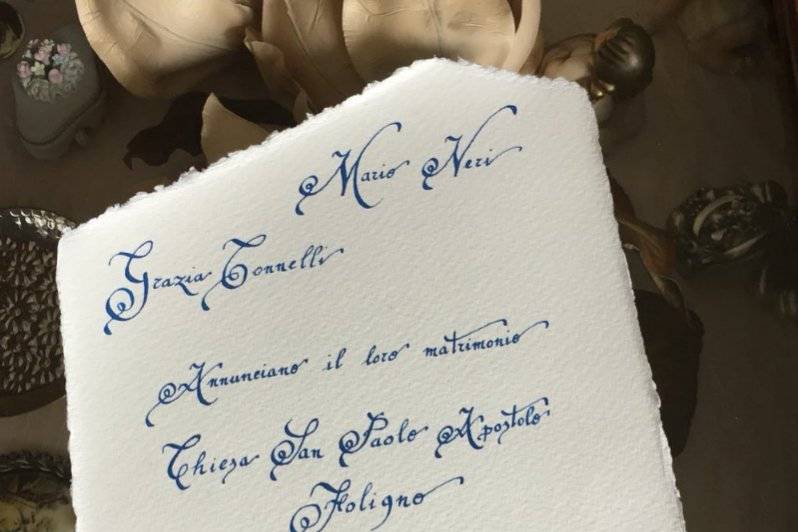 Mario Neri
Grazia Tonnelli
Annunciano il loro matrimonio
Chiesa San Paolo Apostolo
Foligno